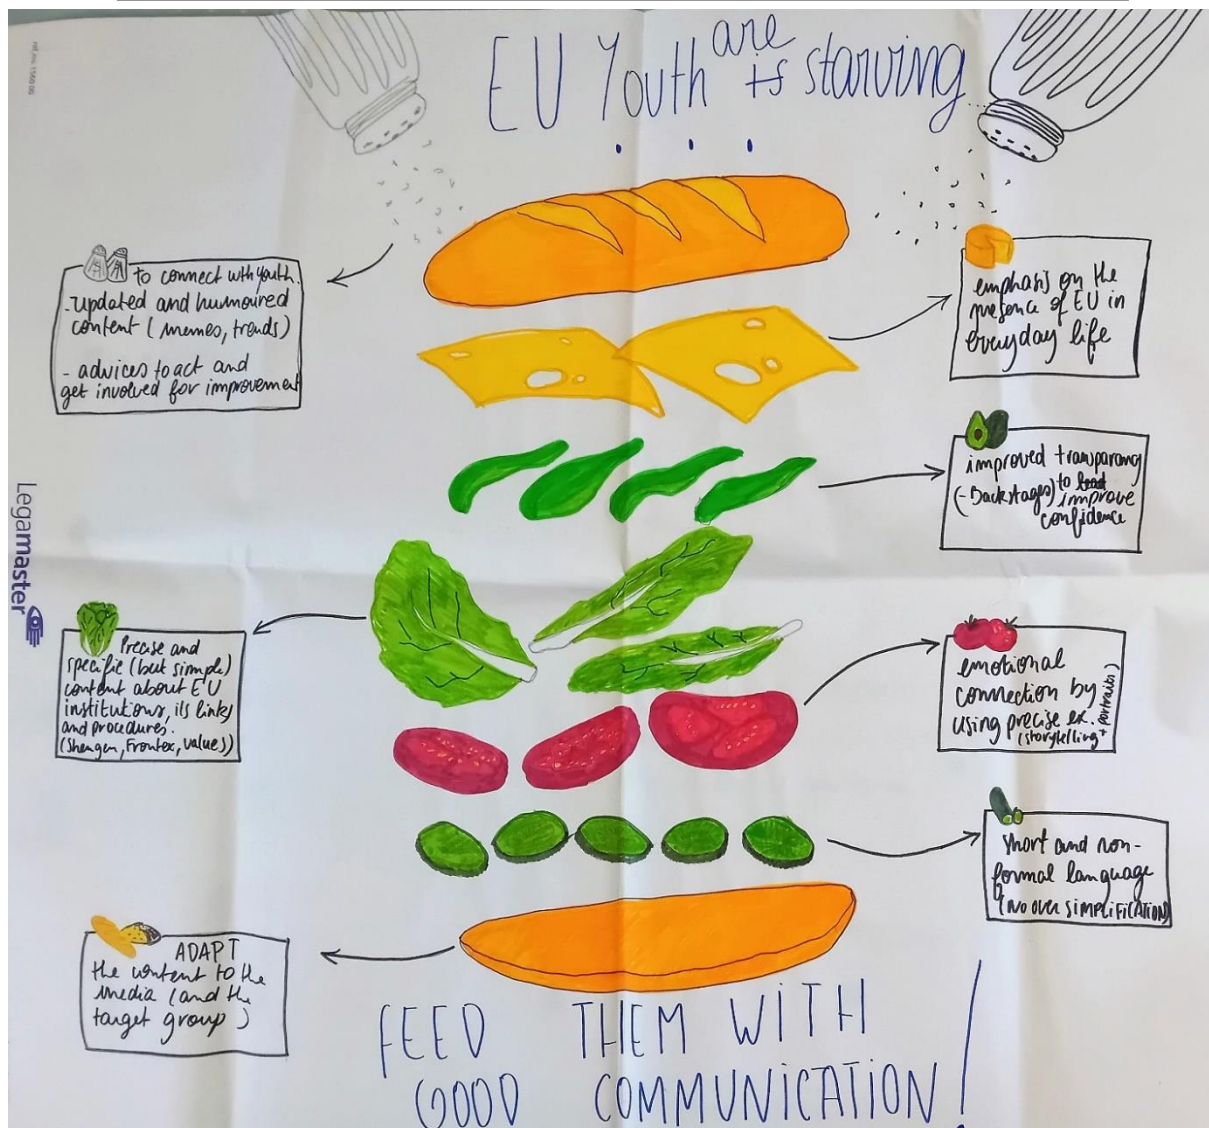 EU Youth are is starving
...
to connect with youth.
- updated and humoured
content (memes, trends)
- advices to act and
get involved for improvement
emphasis on the
presence of EU in
everyday life
improved transparancy
(- Backstages) to
improve
confidence
Precise and
specific (but simple)
content about EU
institutions, its links
and procedures.
(Shengen, Frontex, values))
emotional
connection by
using precise ex.
(storytelling +
portraits)
short and non-
formal language
(NO OVER SIMPLIFICATION)
ADAPT
the content to the
media (and the
target group)
FEED THEM WITH
GOOD COMMUNICATION!
Legamaster